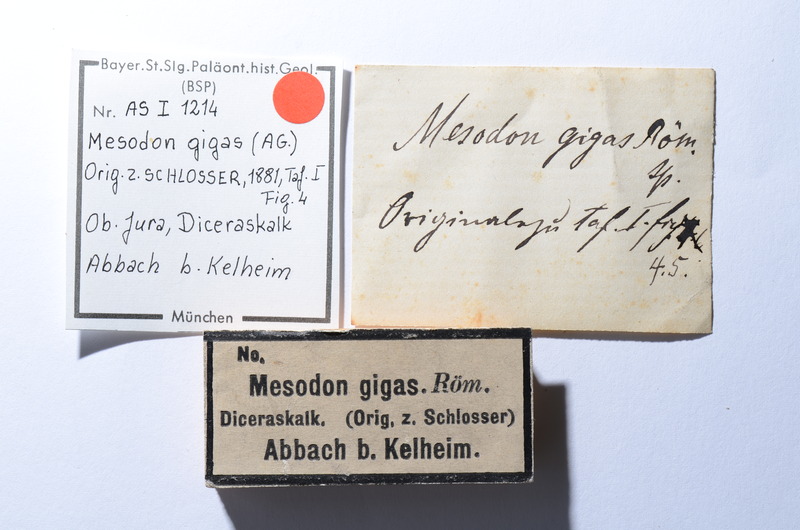 Bayer.St.Slg.Paläont.hist.Geol.
(BSP)
Nr. AS I 1214
Mesodon gigas (AG.)
Orig. z. SCHLOSSER, 1881, Taf. I
Fig. 4
Ob. Jura, Diceraskalk
Abbach b. Kelheim
München
Mesodon gigas Röm.
sp.
Originale zu Taf. I. fig.
4.5.
No.
Mesodon gigas. Röm.
Diceraskalk. (Orig. z. Schlosser)
Abbach b. Kelheim.